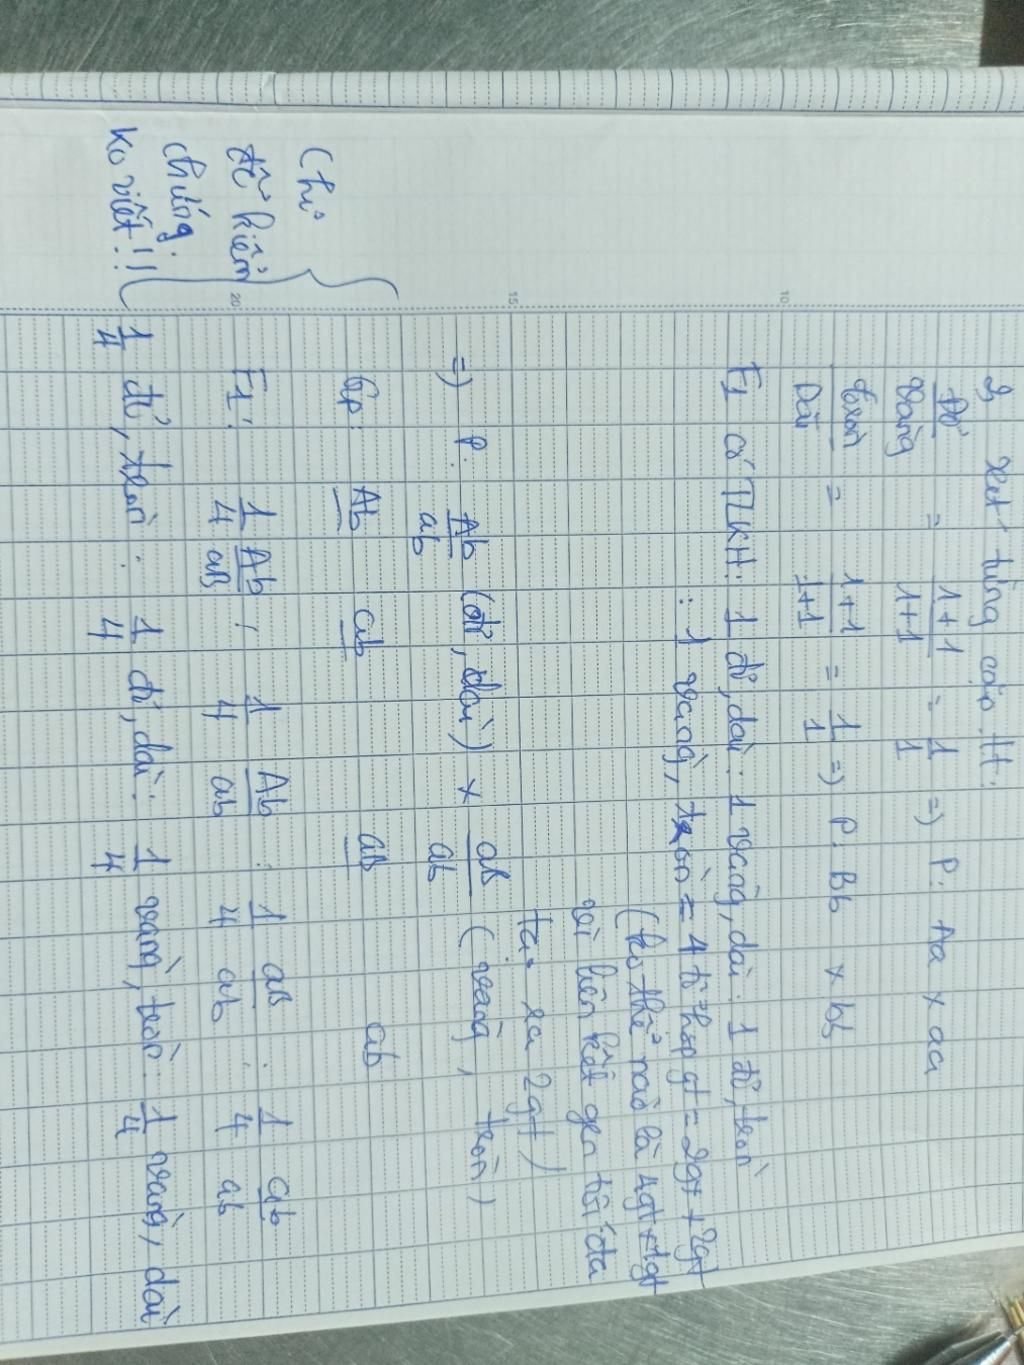 2, xét từng cặp tt:
Đỏ / vàng = 1+1 / 1+1 = 1/1 => P: Aa x aa
tròn / Dài = 1+1 / 1+1 = 1/1 => P: Bb x bb
F1 có TLKH: 1 đỏ, dài : 1 vàng, dài : 1 đỏ, tròn
: 1 vàng, tròn = 4 tổ hợp gt = 2gt x 2gt
(ko thể nào là 4gt x 1gt
vì liên kết gen tối đa
tạo ra 2gt)
=> P: Ab/ab (đỏ, dài) x aB/ab (vàng, tròn)
Gp: Ab ab aB ab
F1: 1/4 Ab/aB : 1/4 Ab/ab : 1/4 aB/ab : 1/4 ab/ab
1/4 đỏ, tròn : 1/4 đỏ, dài : 1/4 vàng, tròn : 1/4 vàng, dài
Chỉ
để kiểm
chứng.
ko viết!!
10
15
20